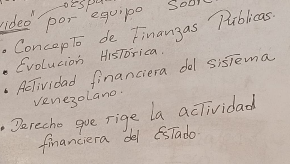 video" por equipo
• Concepto de Finanzas Públicas.
• Evolución Histórica.
• Actividad financiera del sistema
venezolano.
• Derecho que rige la actividad
financiera del Estado.